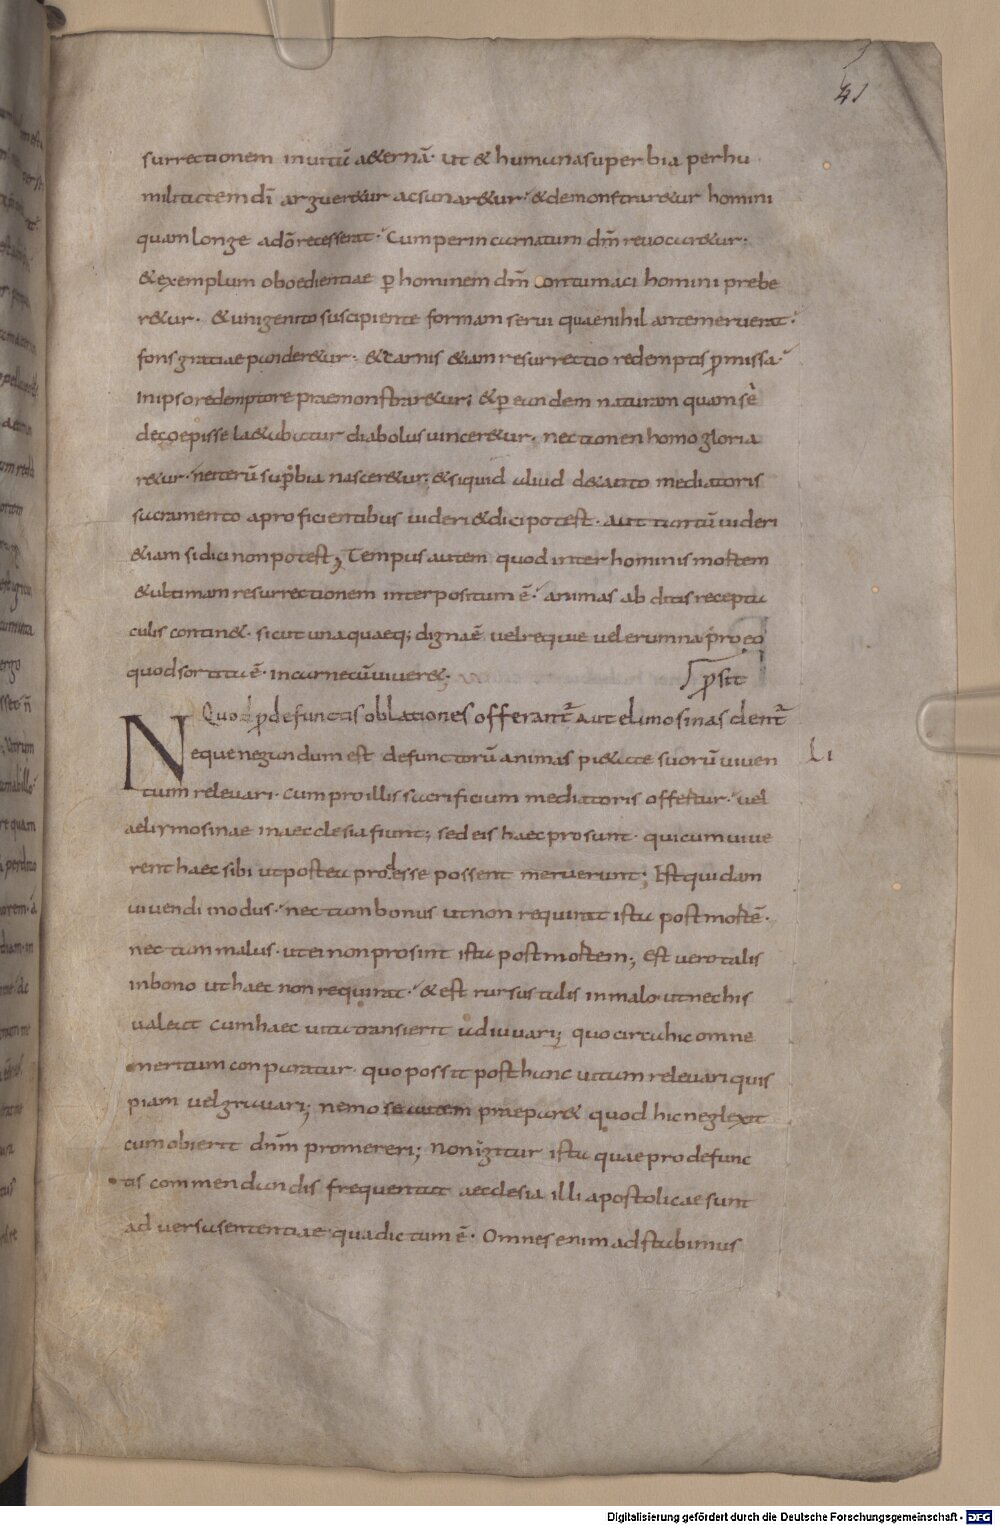 41
surrectionem inuitā a&ernā· ut & humanasuperbia perhu
militatem dī arguer&ur acsanar&ur· &demonstrar&ur homini
quamlonge adō recesserat· Cumperincarnatum dm̄ reuocar&ur·
&exemplum oboedientiae ꝑ hominem dm̄ contumaci homini prebe
r&ur· &unigenito suscipiente formam serui quaenihil antemeruerat·
fons gratiae pander&ur· &carnis &iam resurrectio redemptis ꝓmissa·
Inipso redemptore praemonstrar&ur; &ꝑ eandem naturam quam sē
decoepisse la&abatur diabolus uincer&ur· nec tamen homo gloria
r&ur· neiterū suꝑbia nascer&ur; &siquid aliud de tanto mediatoris
sacramento aproficientibus uideri &dicipotest· aut tantū uideri
&iam sidici nonpotest; Tempus autem quod inter hominis mortem
&ultimam resurrectionem interpositum ē· animas abditis recepta
culis contin&· sicut unaquaeq; digna ē uel requie uel erumna pro eo
quod sortita ē· incarne cū uiuer&;
ꝓsit
Quod ꝓ defunctis oblationes offerantr̄ aut elimosinas dentr̄
Neque negandum est defunctorū animas pi&ate suorū uiuen
LI
tium releuari· cum pro illis sacrificium mediatoris offertur· uel
aelymosinae inaecclesia fiunt; sed eis haec prosunt· qui cum uiue
rent haec sibi ut postea prodesse possent meruerunt; Est quidam
uiuendi modus· nec tam bonus ut non requirat ista post mortē·
nec tam malus· ut ei non prosint ista post mortem; Est uero talis
inbono ut haec non requirat· & est rursus talis in malo· ut nec his
ualeat cum haec uita transierit adiuuari; quocirca hic omne
meritum conparatur· quo possit post hanc uitam releuari quis
piam uel grauari; nemo se autem praepar& quod hic neglexit
cum obierit dnm̄ promereri; Non igitur ista quae pro defunc
tis commendandis frequentat aecclesia illi apostolicae sunt
aduersu sententiae· qua dictum ē· Omnes enim adstabimus
Digitalisierung gefördert durch die Deutsche Forschungsgemeinschaft - DFG